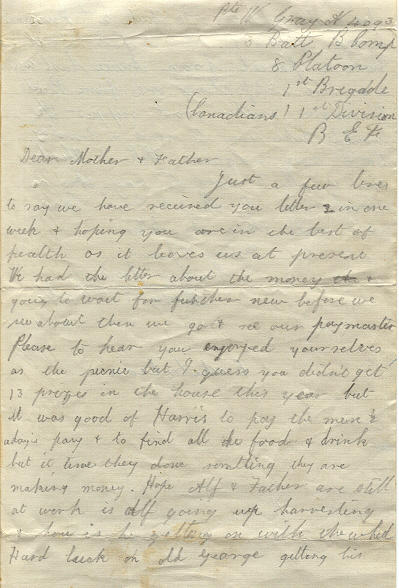 Pte W Gray A 4093
3 Batt, B Comp
8 Platoon
1st Brigade
(Canadians) 1st Division
B E F
Dear Mother & Father
Just a few lines
to say we have received you letter 2 in one
week & hoping you are in the best of
health as it leaves us at present
We had the letter about the money &
going to wait for further new before we
see about then we go & see our paymaster
Please to hear you enjoyed yourselves
as the picnic but I guess you didn't get
13 prizes in the house this year but
it was good of Harris to pay the men ½
aday's pay & to find all the food & drink
but it time they done somthing they are
making money. Hope Alf & Father are still
at work is Alf going up harvesting
& how is he getting on with the
Hard luck on old George getting his